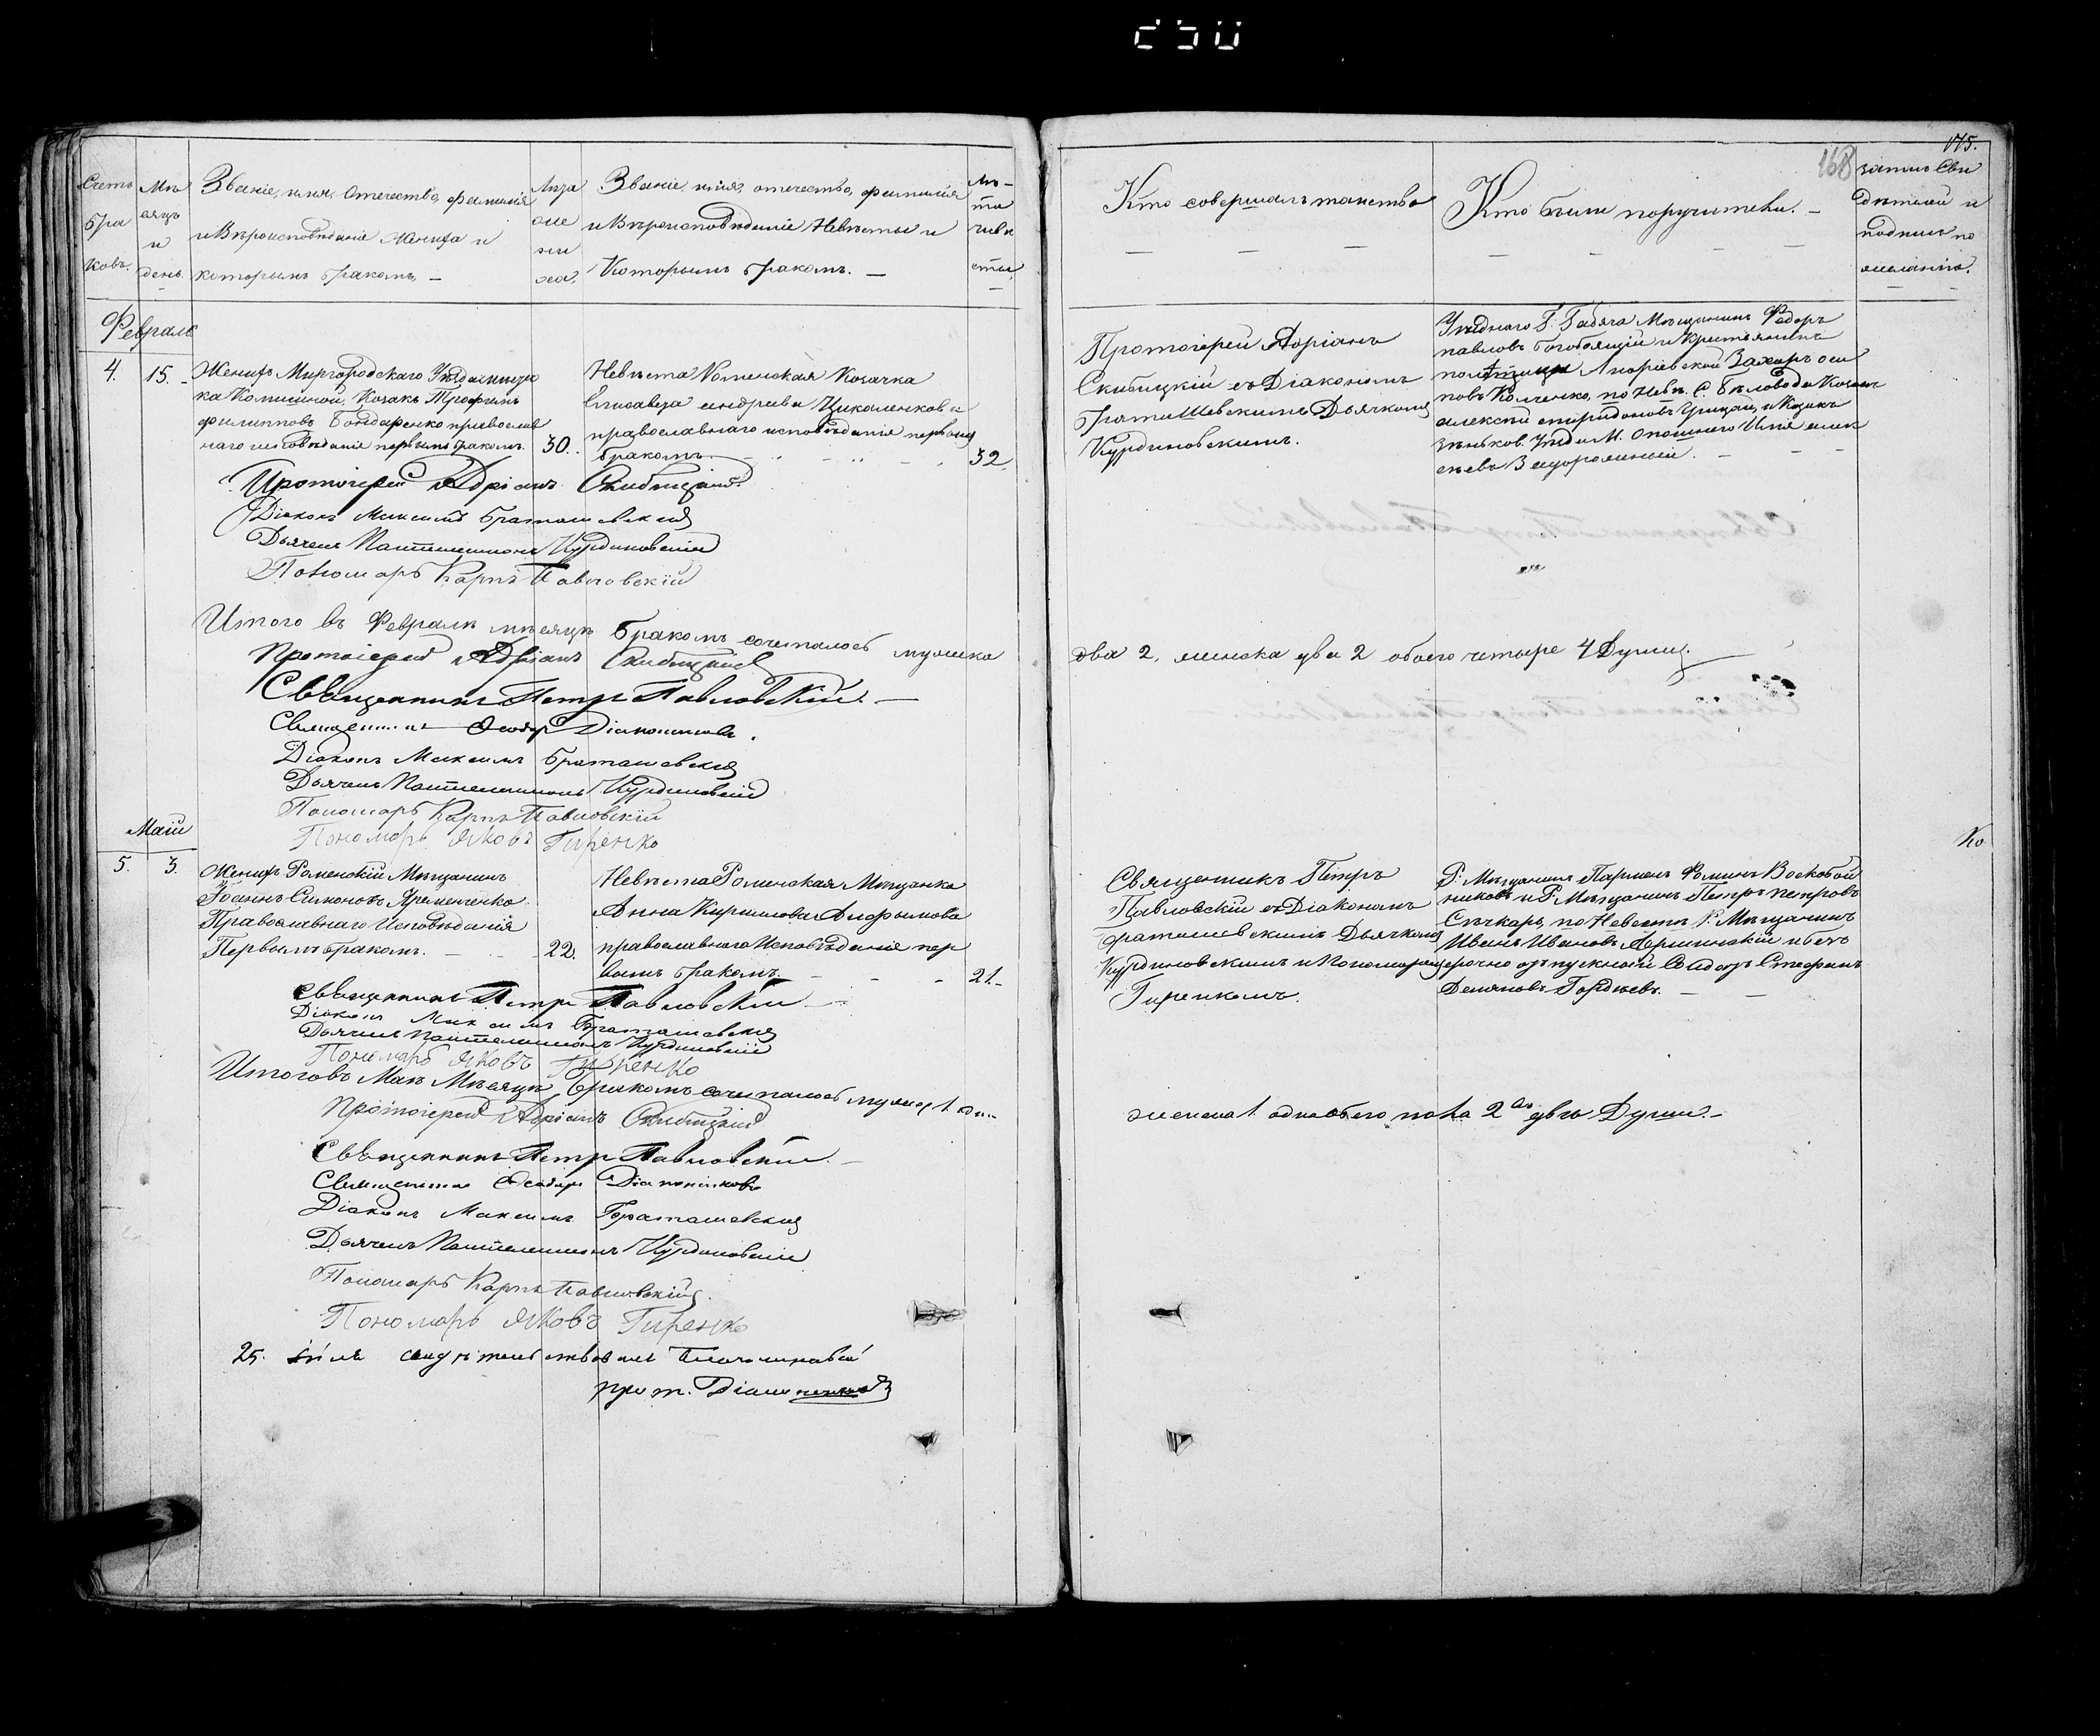 175.
168
Счетъ бра ковъ.
Мѣ сяцъ и день.
Званіе, имя, отечество, фамилія
и Вѣроисповѣданіе Жениха и
которымъ бракомъ, —
Лѣта же ни ха,
Званіе, имя, отечество, фамилія
и Вѣроисповѣданіе Невѣсты и
Которымъ бракомъ. —
Лѣ- та неве сты,
Кто совершалъ таинство
Кто были поручители. —
запись Сви
дѣтелей и
подпись по
желанію.
Февраль
4. 15. -
Женихъ Миргородскаго Уѣзда мѣстеч
ка Комишной, Козакъ Трофимъ
филипповъ Бондаренко православ
наго исповѣданія первымъ бракомъ. 30.
Невѣста Роменская Козачка
Елисавета андреева Цикаленкова
православнаго исповѣданія первымъ
бракомъ. 32.
Протоіерей Адріанъ
Скибицкій съ Діакономъ
Браташевскимъ Дьячкомъ
Курдиновскимъ.
Уѣзднаго Г. Гадяча Мѣщанинъ Федоръ
павловъ Богобоящій и Крестьянинъ
помѣщицы Захаръ оси
повъ Колченко, по Невѣ. С. Бѣловода Козакъ
алексѣй спиридоновъ Грицай, и Козакъ
Зѣньков. Уѣзда М. Опошнего Илія алек
сѣевъ Задорожный. —
Протоіерей Адріанъ Скибицкій
Діаконъ Максимъ Браташевскій
Дьячекъ Пантелеимонъ Курдиновскій
Пономарь Карпъ Павловскій
Итого въ Февралѣ мѣсяцѣ бракомъ сочеталось мужска
два 2, женска два 2 обоего четыре 4 Душъ.
Протоіерей Адріанъ Скибицкій
Священникъ Петръ Павловскій. —
Священникъ Феодоръ Діаконенковъ.
Діаконъ Максимъ Браташевскій
Дьячекъ Пантелеимонъ Курдиновскій
Пономарь Карпъ Павловскій
Пономарь Яковъ Гиренко
Маій
5. 3.
Женихъ Роменскій Мѣщанинъ
Іоаннъ Симоновъ Яременченко
Православнаго Исповѣданія
Первымъ бракомъ. 22.
Невѣста Роменская Мѣщанка
Анна Кирилова Алфимова
православнаго Исповѣданія пер
вымъ бракомъ. 21. -
Священикъ Петръ
Павловскій съ Діакономъ
Браташевскимъ Дьячкомъ
Курдиновскимъ и Пономаремъ
Гиренкомъ.
Р. Мѣщанинъ Парменъ Фоминъ Воскобой
никовъ и Р. Мѣщанинъ Петръ петровъ
Сѣчкарь, по Невестѣ Р. Мѣщанинъ
Иванъ Ивановъ и безъ
срочно отпускный Солдатъ Стефанъ
Демяновъ Гордѣевъ. —
Ко
Священникъ Петръ Павловскій
Діаконъ Максимъ Браташевскій
Дьячекъ Пантелеимонъ Курдиновскій
Пономарь Яковъ Гиренко
Итого въ Маѣ Мѣсяцѣ бракомъ сочеталось мужск. 1 одн.
женска 1 одна обоего пола 2 двѣ Души. —
Протоіерей Адріанъ Скибицкій
Священникъ Петръ Павловскій. —
Священникъ Феодоръ Діаконенковъ
Діаконъ Максимъ Браташевскій
Дьячекъ Пантелеимонъ Курдиновскій
Пономарь Карпъ Павловскій.
Пономарь Яковъ Гиренко
25. Іюля свидѣтельствовалъ Благочинный
прот. Діаконенковъ